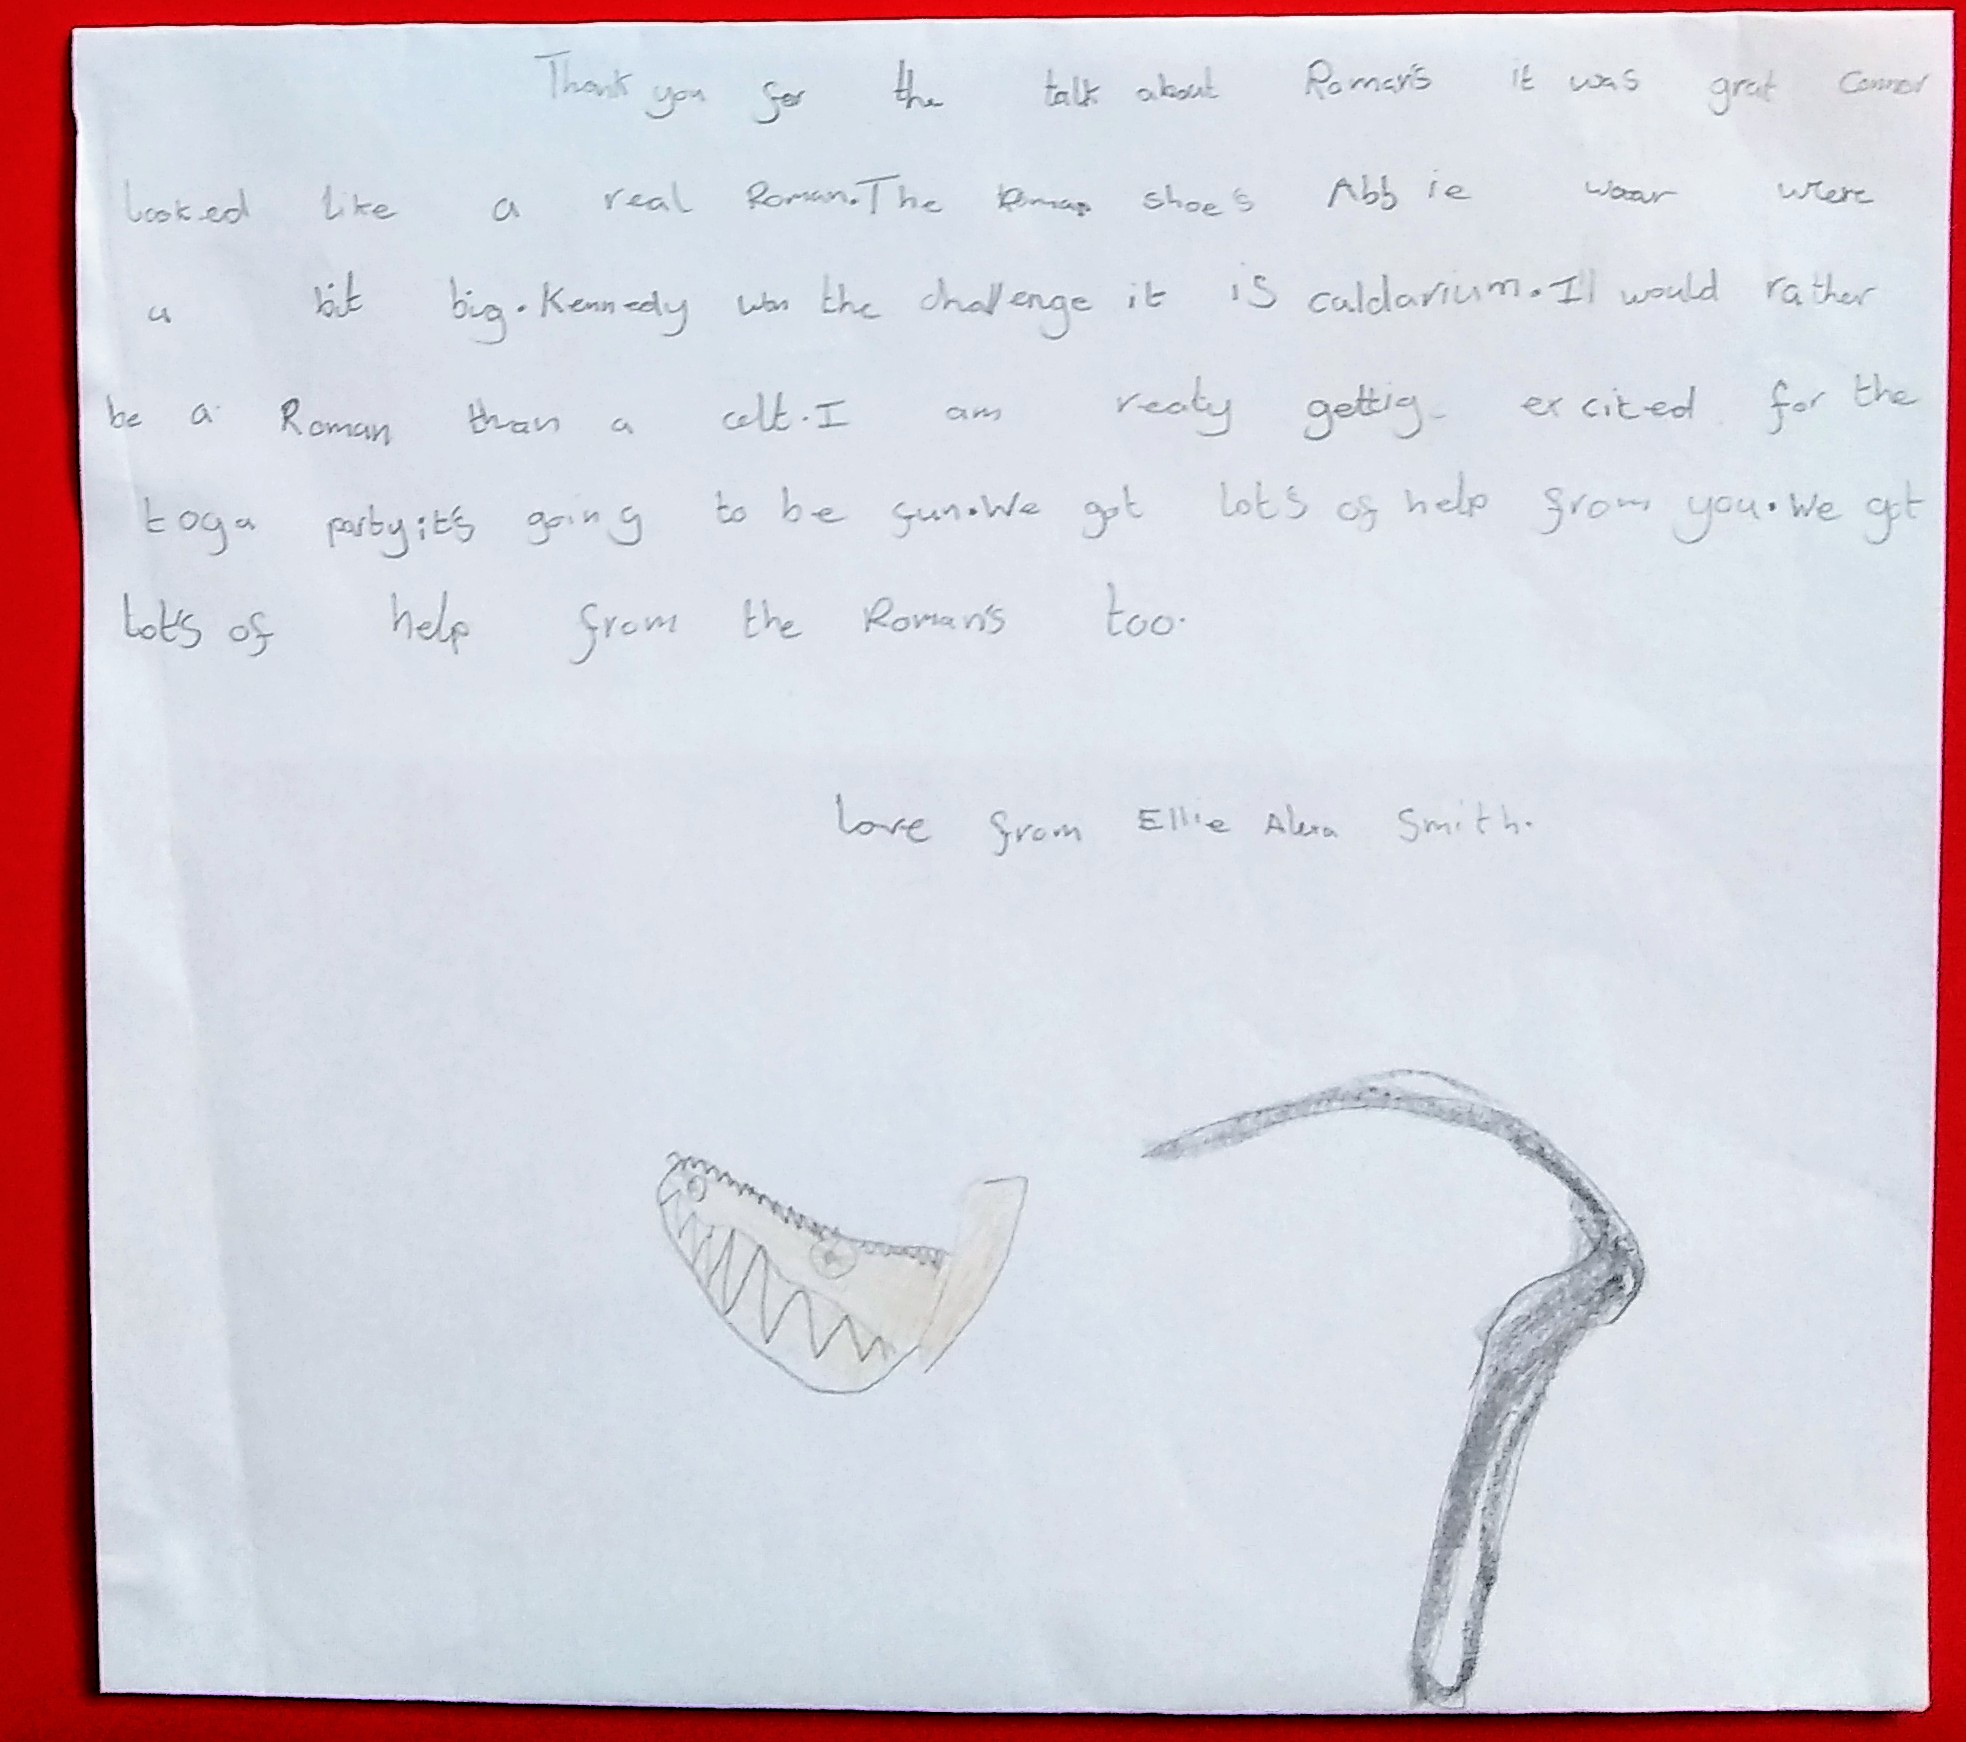 Thank you for the talk about Roman's it was grat Connor
looked like a real Roman.The Roman shoe's Abbie waar were
a bit big.Kennedy won the challenge it is caldarium.I would rather
be a Roman than a celt.I am realy gettig excited for the
toga party;it's going to be fun.We got lot's of help from you.We got
lot's of help from the Roman's too.
Love from Ellie Alexa Smith.